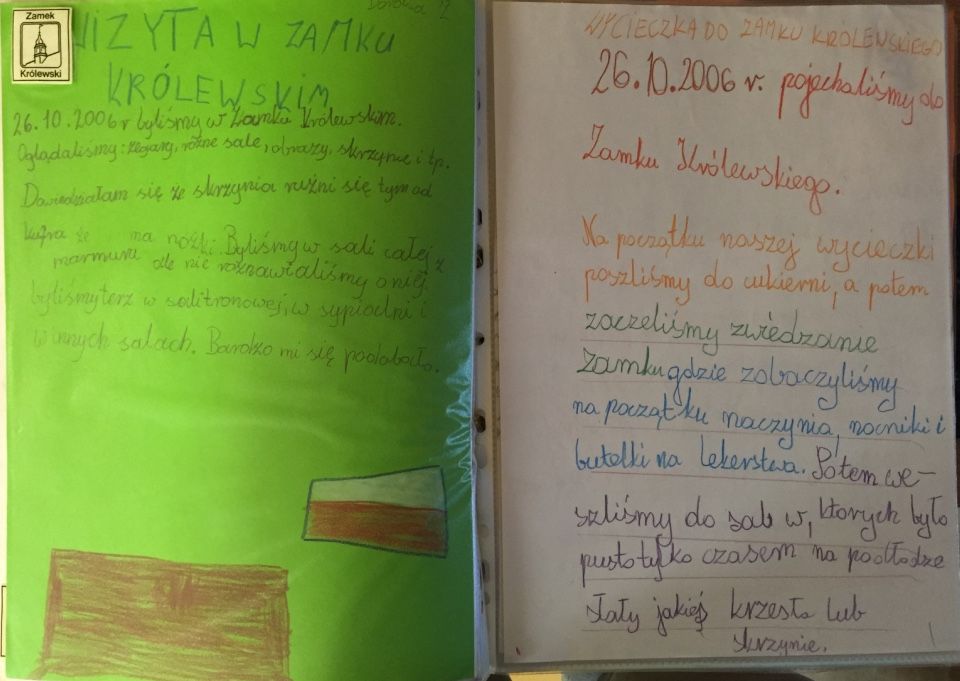 Zamek
Królewski
WIZYTA W ZAMKU
KRÓLEWSKIM
26.10.2006r byliśmy w Zamku Królewskim.
Oglądaliśmy: zegary, różne sale, obrazy, skrzynie i tp.
Dowiedziałam się że skrzynia rużni się tym od
kufra że ma nóżki. Byliśmy w sali całej z
marmuru ale nie rozmawialiśmy o niej.
byliśmy terz w sali tronowej, w sypialni i
w innych salach. Bardzo mi się podobało.
WYCIECZKA DO ZAMKU KRÓLEWSKIEGO
26.10.2006 r. pojechaliśmy do
Zamku Królewskiego.
Na początku naszej wycieczki
poszliśmy do cukierni, a potem
zaczeliśmy zwiedzanie
zamku gdzie zobaczyliśmy
na początku naczynia, nocniki i
butelki na lekerstwa. Potem we-
szliśmy do sal w, ktorych było
pusto tylko czasem na podłodze
stały jakieś krzesła lub
skrzynie.